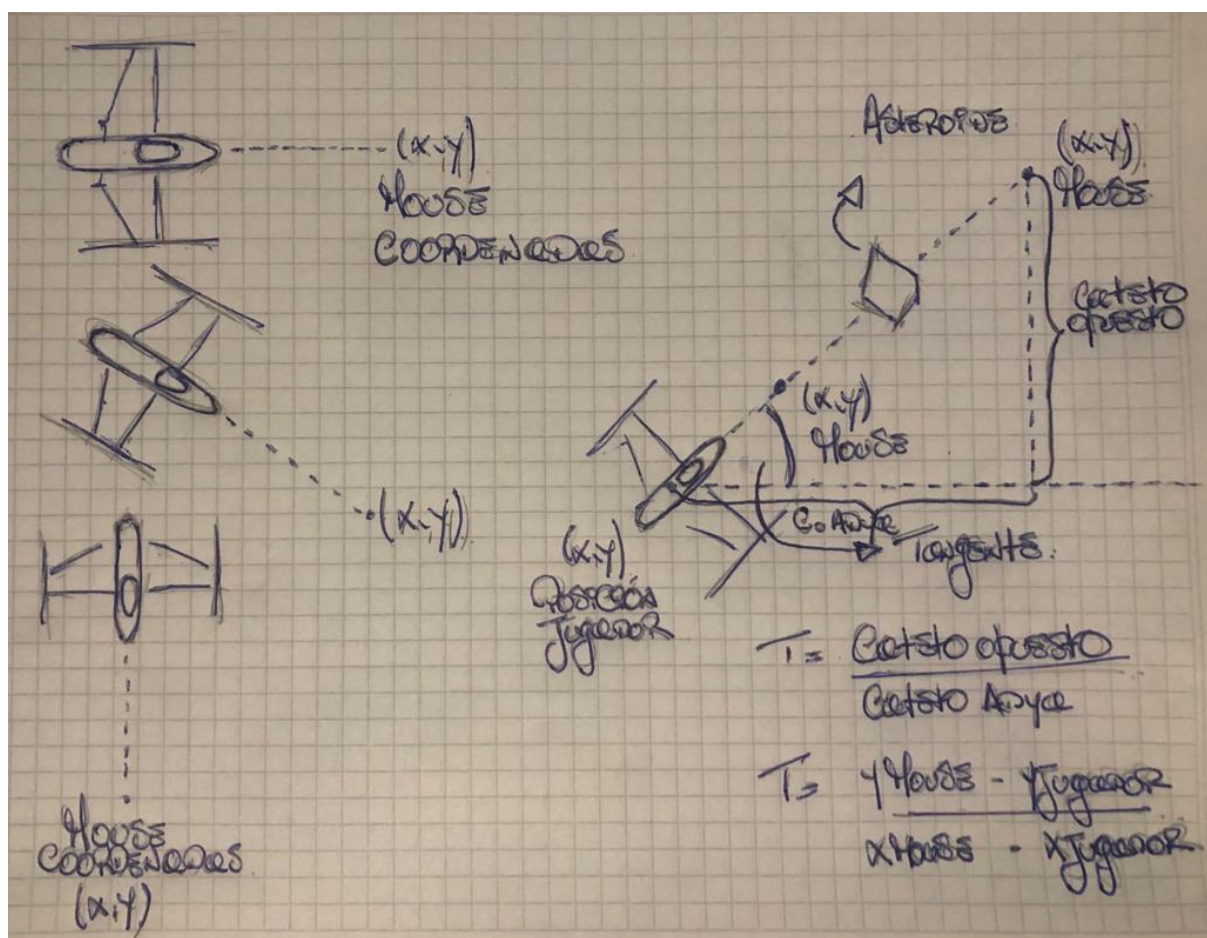 (x,y)
MOUSE
COORDENADAS
(x,y)
MOUSE
COORDENADAS
(x,y)
ASTEROIDE
(x,y)
MOUSE
Cateto
opuesto
(x,y)
MOUSE
C. Adya
Tangente.
(x,y)
POSICIÓN
JUGADOR
T= Cateto opuesto
Cateto Adya
T= yMouse - yJugador
xMouse - xJugador